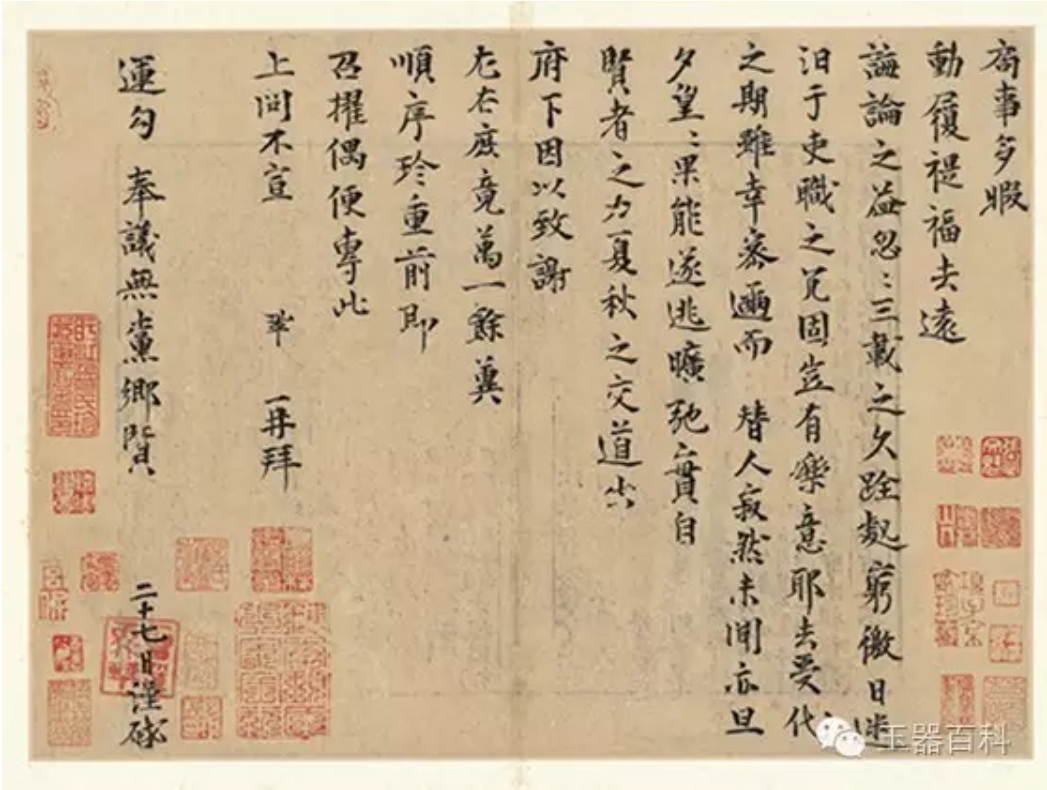 局事多暇
動履禔福去遠
誨論之益忽〻三載之久跧處窮徼日迷
汩于吏職之冗固豈有樂意耶去受代
之期雖幸密邇而　替人寂然未聞亦旦
夕望〻果能遂逃曠弛實自
賢者之力夏秋之交道出
府下因以致謝
左右庶竟萬一餘冀
順序珍重前即
召擢偶便專此
上問不宣　鞏　再拜
運勾　奉議無黨鄉賢
二十七日謹啓
玉器百科